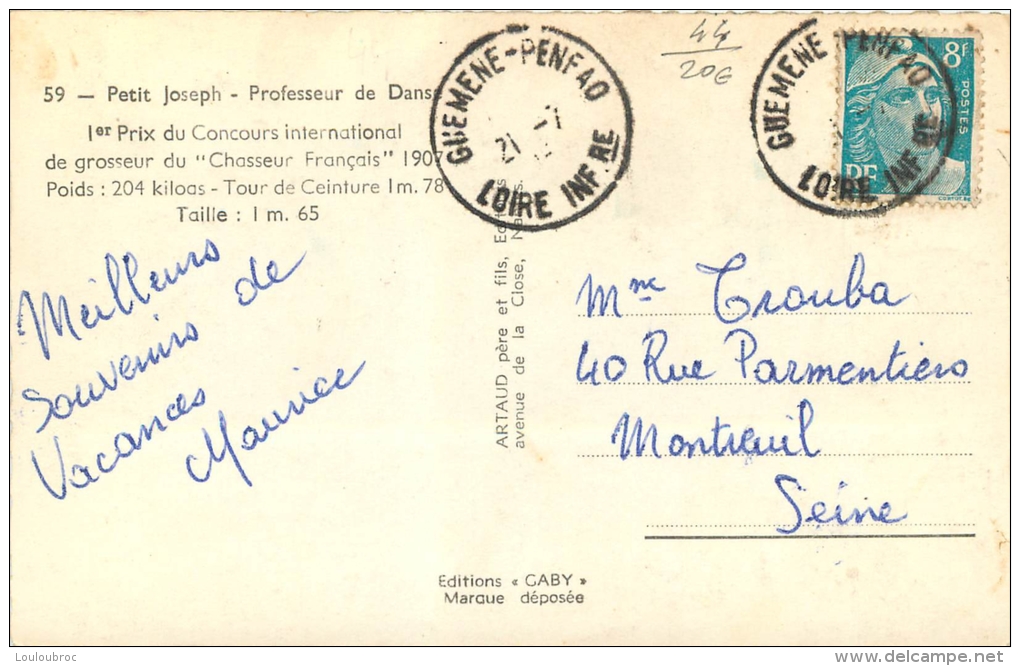 59 — Petit Joseph - Professeur de Dans
1er Prix du Concours international
de grosseur du "Chasseur Français" 1907
Poids : 204 kiloas - Tour de Ceinture 1 m. 78
Taille : 1 m. 65
Meilleurs
Souvenirs de
Vacances
Maurice
GUEMENE-PENFAO
21 -7
LOIRE INFRE
44
20€
GUEMENE PENFAO
LOIRE INF RE
8F
POSTES
RF
ARTAUD père et fils,
avenue de la Close,
Mme Trouba
40 Rue Parmentiers
Montreuil
Seine
Editions « GABY »
Marque déposée
Louloubroc
www.delcampe.net